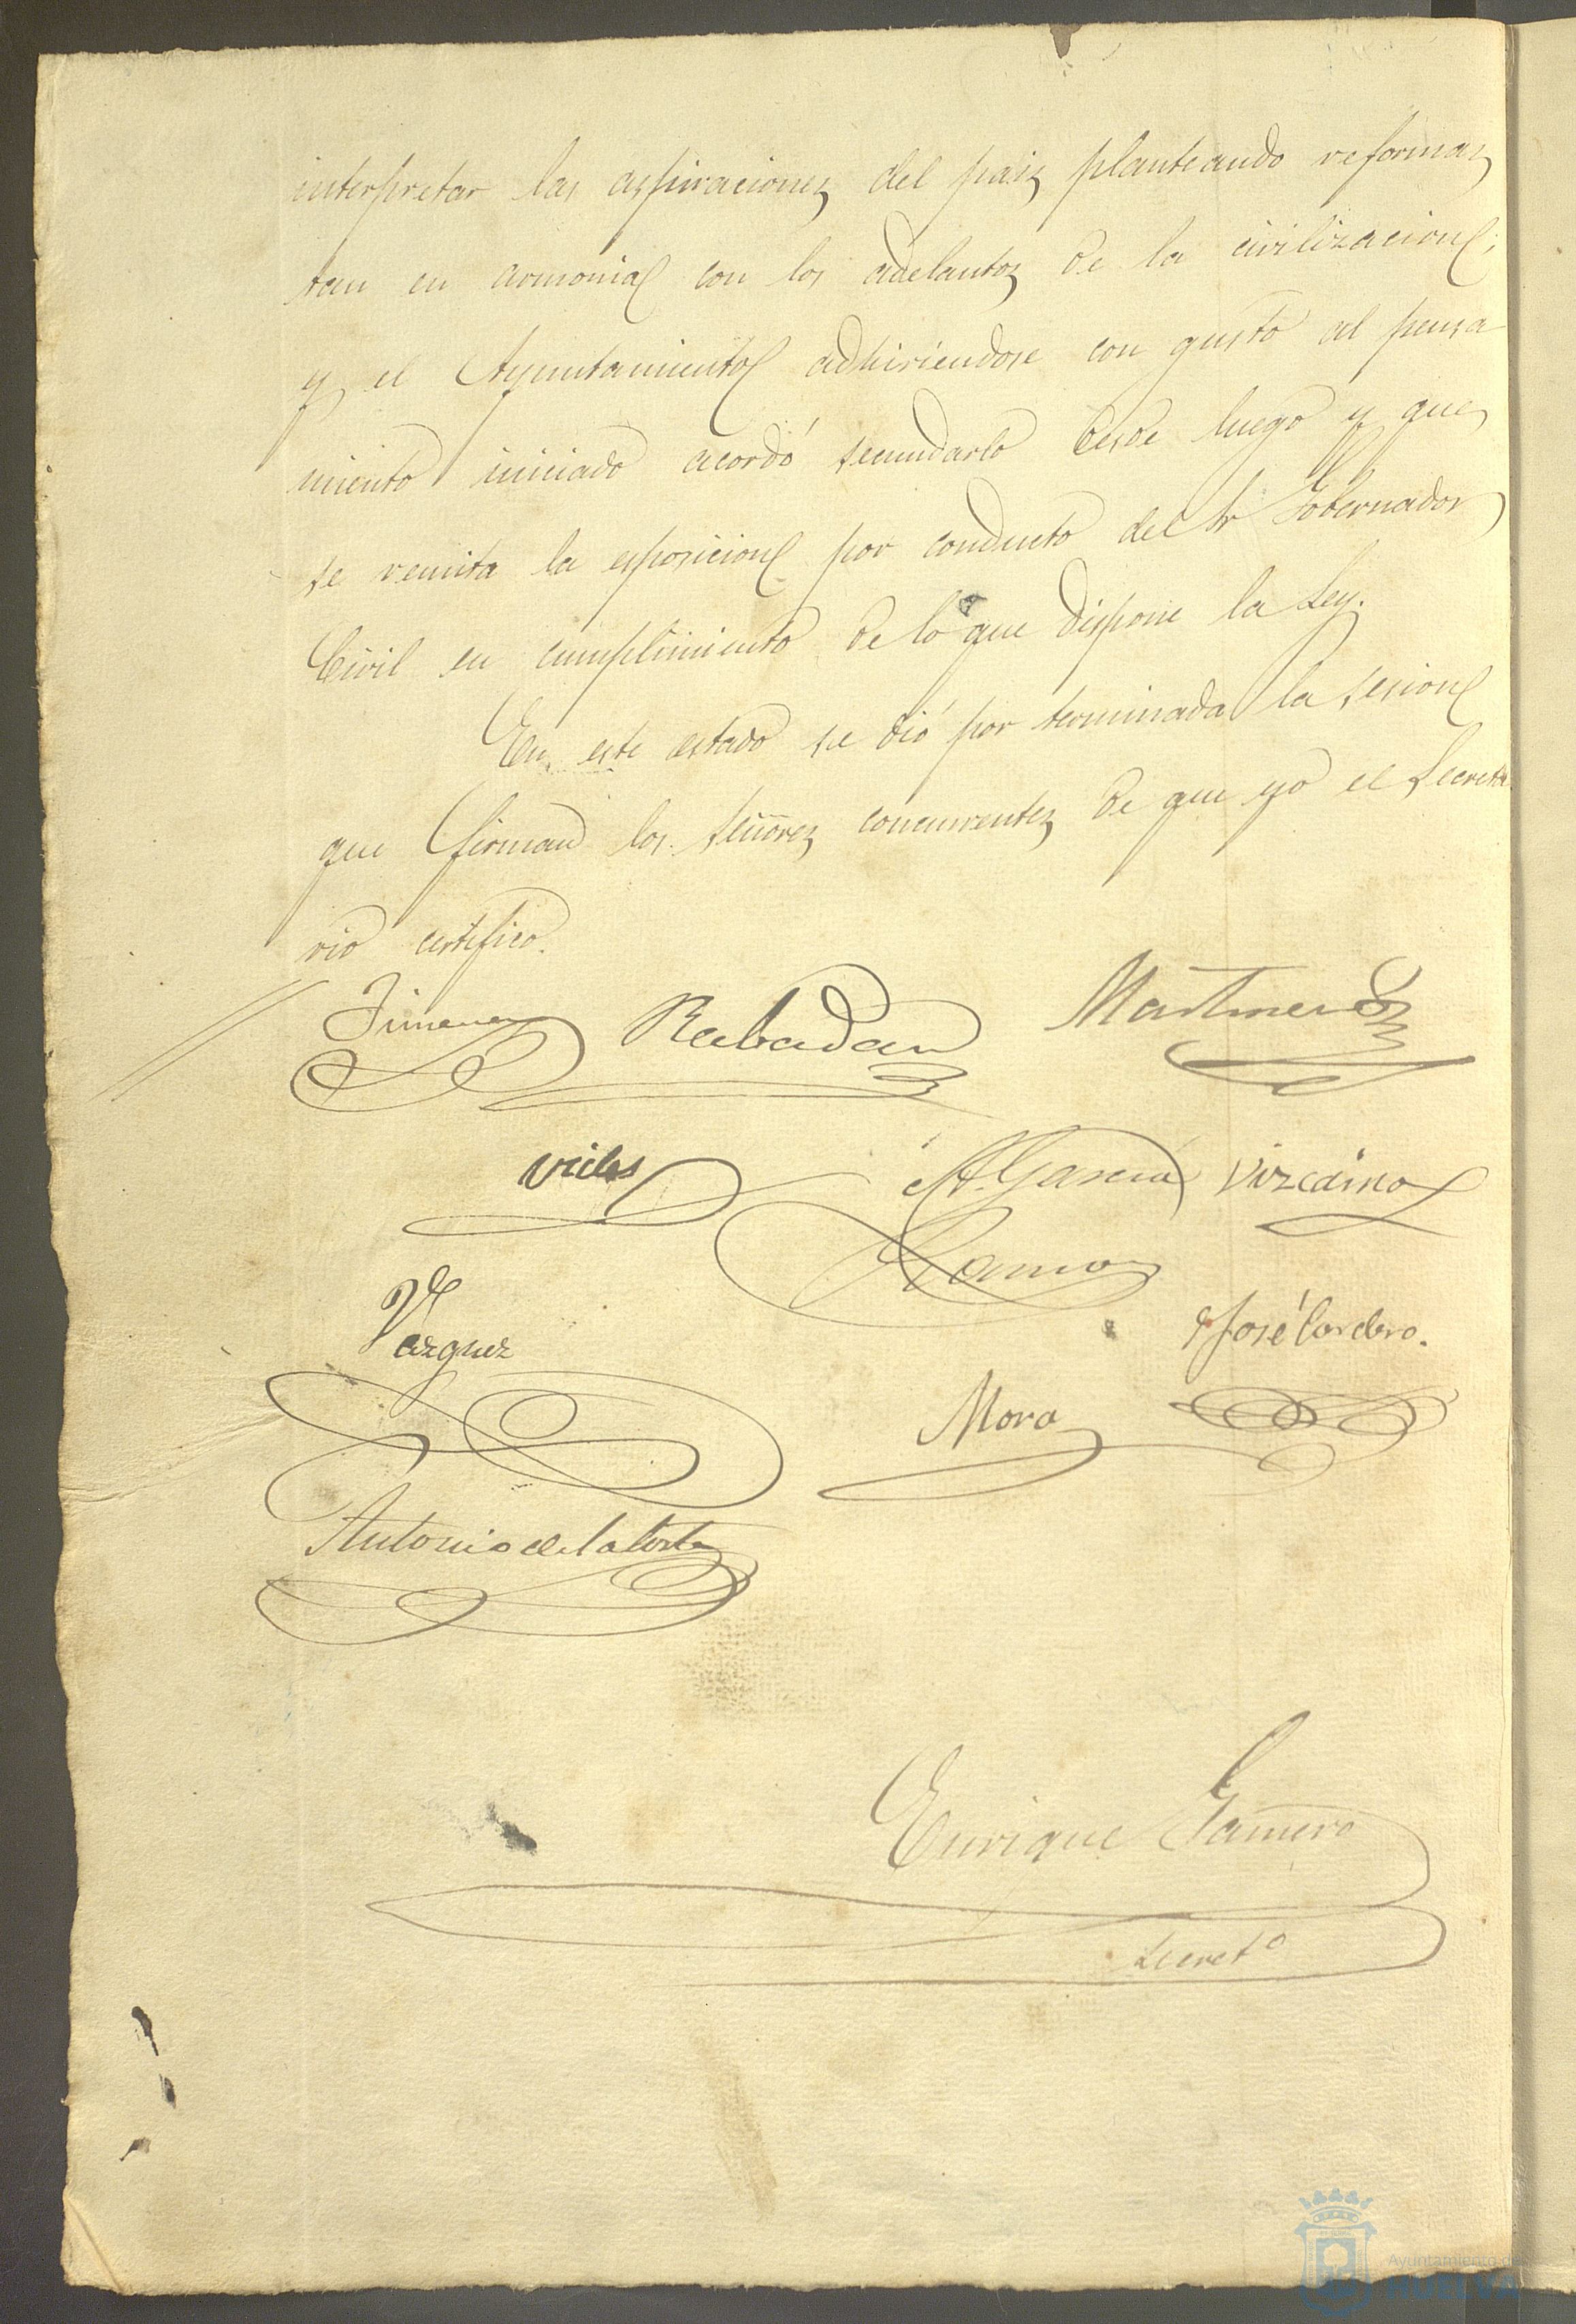 interpretar las aspiraciones del pais planteando reformas
tan en armonia con los adelantos de la civilizacion;
y el Ayuntamiento adhiriendose con gusto al pensa
miento iniciado acordó secundarlo desde luego y que
se remita la esposicion por conducto del Sr Gobernador
Civil en cumplimiento de lo que dispone la Ley.
En este estado se dió por terminada la sesion
que firman los Señores concurrentes de que yo el Secreta
rio certifico.
Jimenez Rabadan Martinez
A. Garcia Vizcaino
Ramos
Vazquez
José Cordero.
Mora
Antonio de la Corte
Enrique Gamero
Secret.o
Ayuntamiento de
HUELVA